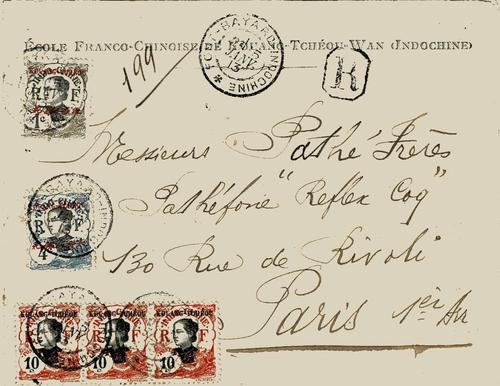 ÉCOLE FRANCO-CHINOISE DE KOUANG-TCHÉOU-WAN (INDOCHINE)
199
FORT-BAYARD INDOCHINE
R
KOUANG-TCHÉOU
R F
1
Messieurs Pathé Frères
Pathéfone "Reflex Coq"
R F
4
130 Rue de Rivoli
Paris 1er Arr
KOUANG-TCHÉOU KOUANG-TCHÉOU KOUANG-TCHÉOU
R F R F R F
10 10 10